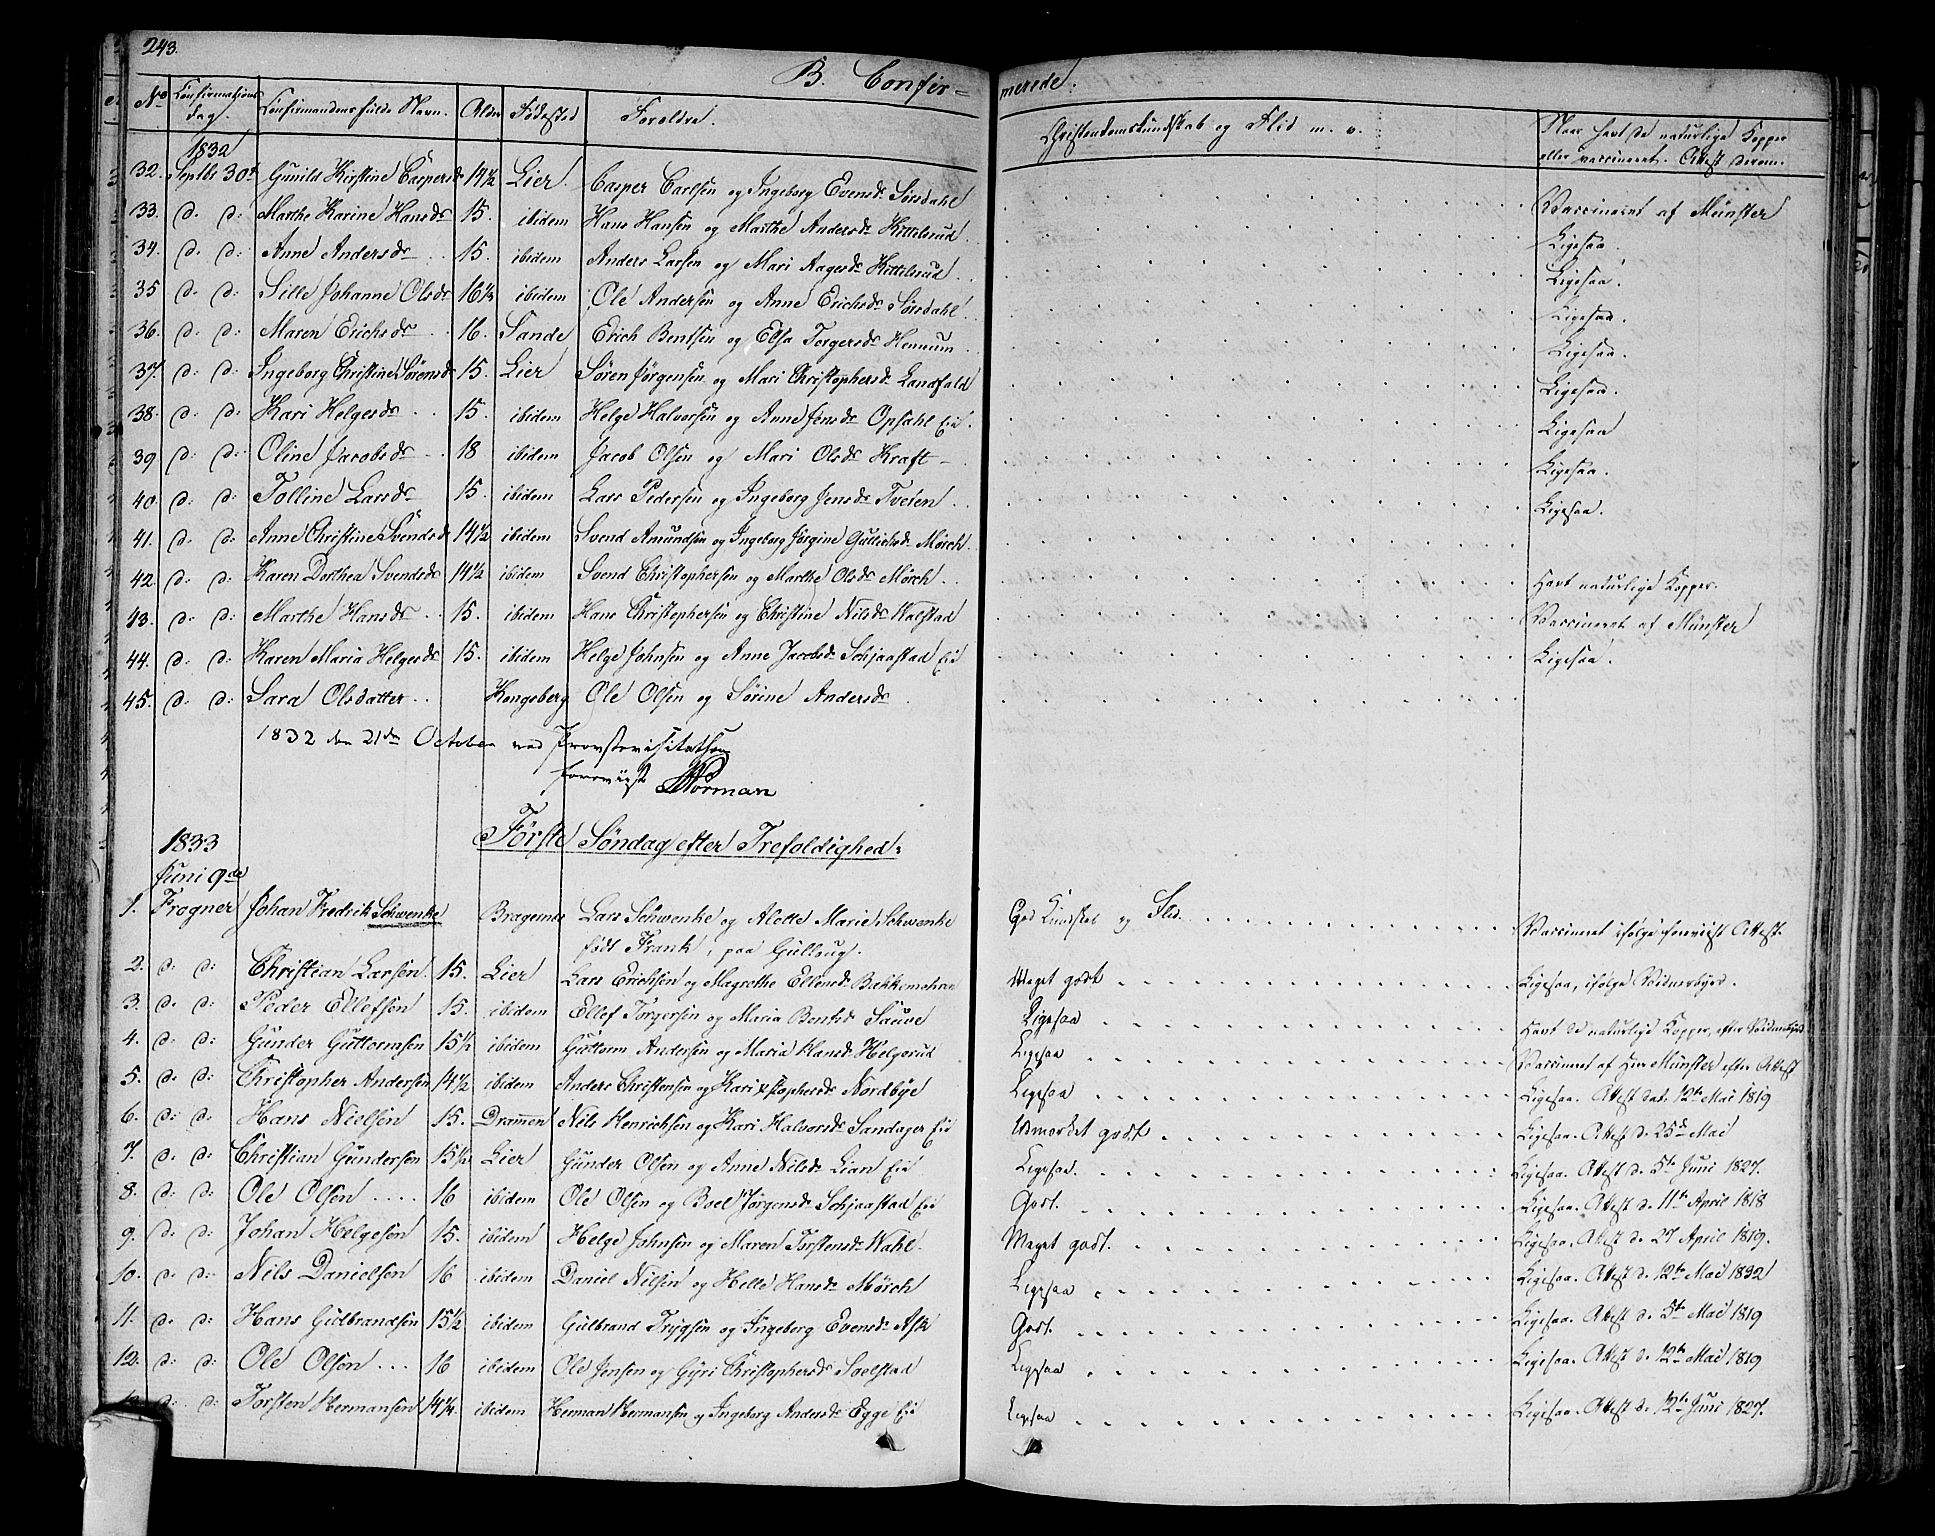 243.
B. Confirmerede.
No Confirmations Dag. Confirmandens fulde Navn. Alder Fødested Forældre. Christendomskundskab og Flid m. v. Naar havt de naturlige Kopper
eller vaccineret. Attest derom.
1832
32. Septbr 30te Gunild Kirstine Caspersdr 14½ Lier. Casper Carlsen og Ingeborg Evensdr Sørsdahl Vaccineret af Münster
33. d. d: Marthe Karine Hansdr 15. ibidem Hans Hansen og Marthe Andersdr Kittelsrud. Ligesaa.
34. d. d: Anne Andersdr 15. ibidem Anders Larsen og Mari Aagesdr Kittelsrud. Ligesaa.
35 d. d: Sille Johanne Olsdr 16½ ibidem Ole Andersen og Anne Erichsdr Sørsdahl. Ligesaa.
36. d: d: Maren Erichsdr 16. Sande Erich Bentsen og Elsa Torgersdr Hennum Ligesaa.
37. d: d: Ingeborg Christine Sørensdr 15. Lier Søren Jørgensen og Mari Christophersdr Landfald Ligesaa.
38. d: d: Kari Helgesdr 15. ibidem Helge Halvorsen og Anne Jensdr Opsahl Eie. Ligesaa
39 d: d: Oline Jacobsdr 18 ibidem Jacob Olsen og Mari Olsdr Kraft Ligesaa.
40. d: d: Tolline Larsdr 15. ibidem Lars Pedersen og Ingeborg Jensdr Tveten Ligesaa.
41. d: d: Anne Christine Svendsdr 14½ ibidem Svend Amundsen og Ingeborg Jørgine Gulliksdr Mørch.
42. d: d: Karen Dorthea Svendsdr 14½ ibidem Svend Christophersen og Marthe Olsdr Mørch Havt naturlige Kopper.
43. d: d: Marthe Hansdr 15. ibidem Hans Christophersen og Christine Nilsdr Valstad Vaccineret af Münster
44. d: d: Karen Maria Helgesdr 15. ibidem Helge Johnsen og Anne Jacobsdr Schjaastad Eie Ligesaa.
45. d: d: Sara Olsdatter Kongsberg Ole Olsen og Sørine Andersdr
1832 den 21de October ved Provstevisitatsen
foreviist Norman
Første Søndag efter Trefoldighed:
1833
Juni 9de
1. Frogner Johan Fredrik Schwenke Bragernes Lars Schwenke og Alette Marie Schwenke God Kundskab og Flid. Vaccineret ifølge foreviist Attest.
født Frank, paa Gullaug.
2. d: d: Christian Larsen 15. Lier Lars Erichsen og Magrethe Ellensdr Bækkemohren Meget godt Ligesaa, ifølge Vidnesbyrd.
3. d. d: Peder Ellefsen 15. ibidem Ellef Torgersen og Maria Bentsdr Sauve Ligesaa Havt de naturlige Kopper, efter Vidnesbyrd
4. d: d: Gunder Guttormsen 15½ ibidem Guttorm Andersen og Maria Hansdr Helgerud Ligesaa Vaccineret af Herr Münster efter Attest
5. d. d: Christopher Andersen 14½ ibidem Anders Christensen og Kari Xstophersdr Nordbye Ligesaa Ligesaa. Attest dat. 12te Mai 1819
6. d: d: Hans Nielsen 15. Drammen Nils Henrichsen og Kari Halvorsdr Sandager Eie Udmerket godt Ligesaa. Attest d. 25de Mai
7. d. d. Christian Gundersen 15½ Lier Gunder Olsen og Anne Nilsdr Lian Eie Ligesaa. Ligesaa. Attest d. 5te Juni 1827.
8. d: d: Ole Olsen 16 ibidem Ole Olsen og Boel Jørgensdr Schjaastad Eie Godt. Ligesaa. Attest d. 11te April 1818
9. d: d: Johan Helgesen 15. ibidem Helge Johnsen og Maren Torstensdr Wahl. Meget godt. Ligesaa. Attest d. 27 April 1819.
10. d. d: Nils Danielsen 16 ibidem Daniel Nilsen og Helle Hansdr Mörch Ligesaa Ligesaa. Attest d. 12te Mai 1832
11. d: d: Hans Gulbrandsen 15½ ibidem Gulbrand Trygsen og Ingeborg Evensdr Ask Godt. Ligesaa. Attest d. 5te Mai 1819
12. d: d: Ole Olsen 16 ibidem Ole Jensen og Gyri Christophersdr Soelstad Ligesaa Ligesaa. Attest d. 12te Mai 1819
d: d: Torsten Hermansen 14¼ ibidem Herman Hermansen og Ingeborg Andersdr Egge Eie Ligesaa Ligesaa. Attest d. 12te Juni 1827.